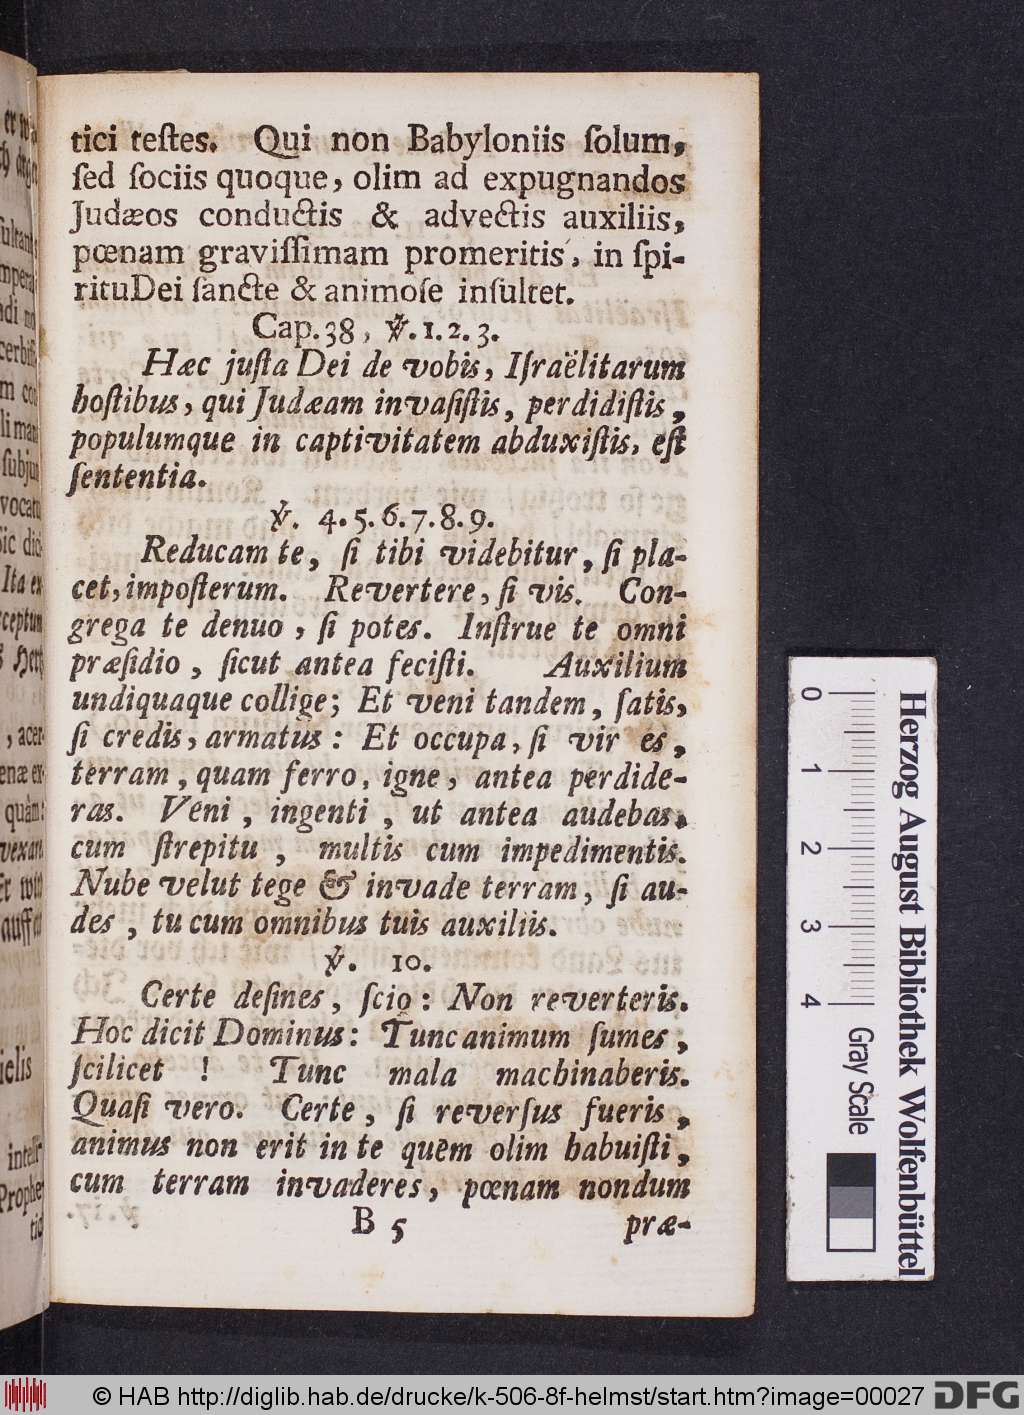 tici teſtes. Qui non Babyloniis ſolum,
ſed ſociis quoque, olim ad expugnandos
Judæos conductis & advectis auxiliis,
pœnam graviſſimam promeritis, in ſpi-
rituDei ſancte & animoſe inſultet.
Cap. 38, ℣. 1. 2. 3.
Hæc juſta Dei de vobis, Iſraëlitarum
hoſtibus, qui Judæam invaſiſtis, perdidiſtis,
populumque in captivitatem abduxiſtis, eſt
ſententia.
℣. 4. 5. 6. 7. 8. 9.
Reducam te, ſi tibi videbitur, ſi pla-
cet, impoſterum. Revertere, ſi vis. Con-
grega te denuo, ſi potes. Inſtrue te omni
præſidio, ſicut antea feciſti. Auxilium
undiquaque collige; Et veni tandem, ſatis,
ſi credis, armatus: Et occupa, ſi vir es,
terram, quam ferro, igne, antea perdide-
ras. Veni, ingenti, ut antea audebas,
cum ſtrepitu, multis cum impedimentis.
Nube velut tege & invade terram, ſi au-
des, tu cum omnibus tuis auxiliis.
℣. 10.
Certe deſines, ſcio: Non reverteris.
Hoc dicit Dominus: Tunc animum ſumes,
ſcilicet! Tunc mala machinaberis.
Quaſi vero. Certe, ſi reverſus fueris,
animus non erit in te quem olim habuiſti,
cum terram invaderes, pœnam nondum
B 5 præ-
Herzog August Bibliothek Wolfenbüttel
0 1 2 3 4 Gray Scale
© HAB http://diglib.hab.de/drucke/k-506-8f-helmst/start.htm?image=00027
DFG